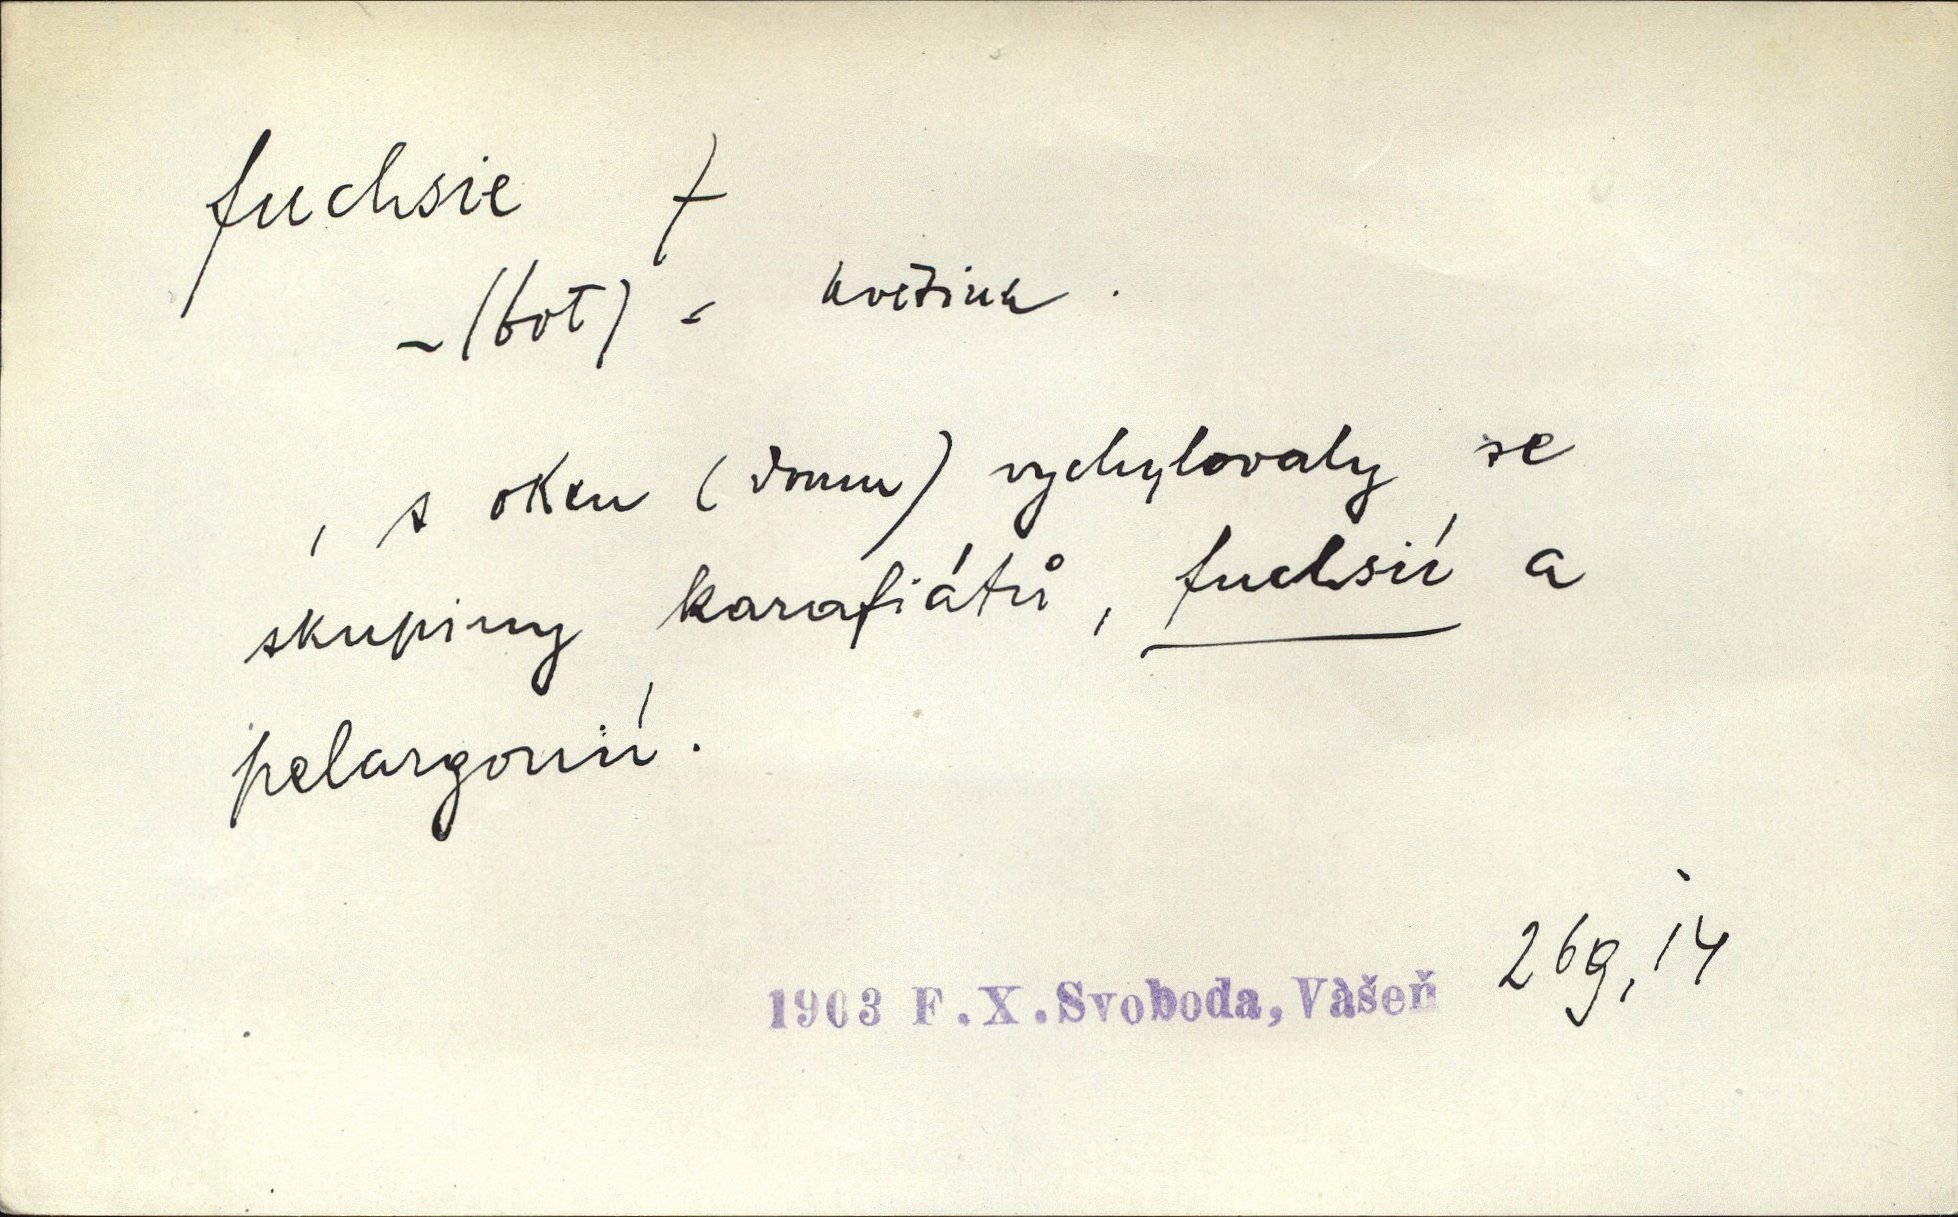 fuchsie f
– (bot) = květina.
, s oken (domu) vychylovaly se
skupiny karafiátů, fuchsií a
pelargonií.
1903 F.X.Svoboda,Vàšeň 269,14